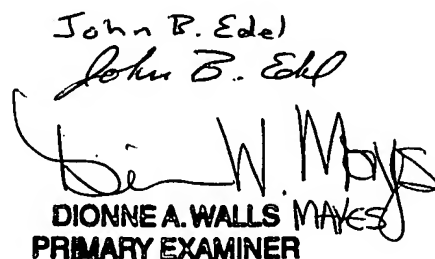 John B. Edel
John B. Edel
Dionne W. Mayes
DIONNE A. WALLS MAYES
PRIMARY EXAMINER